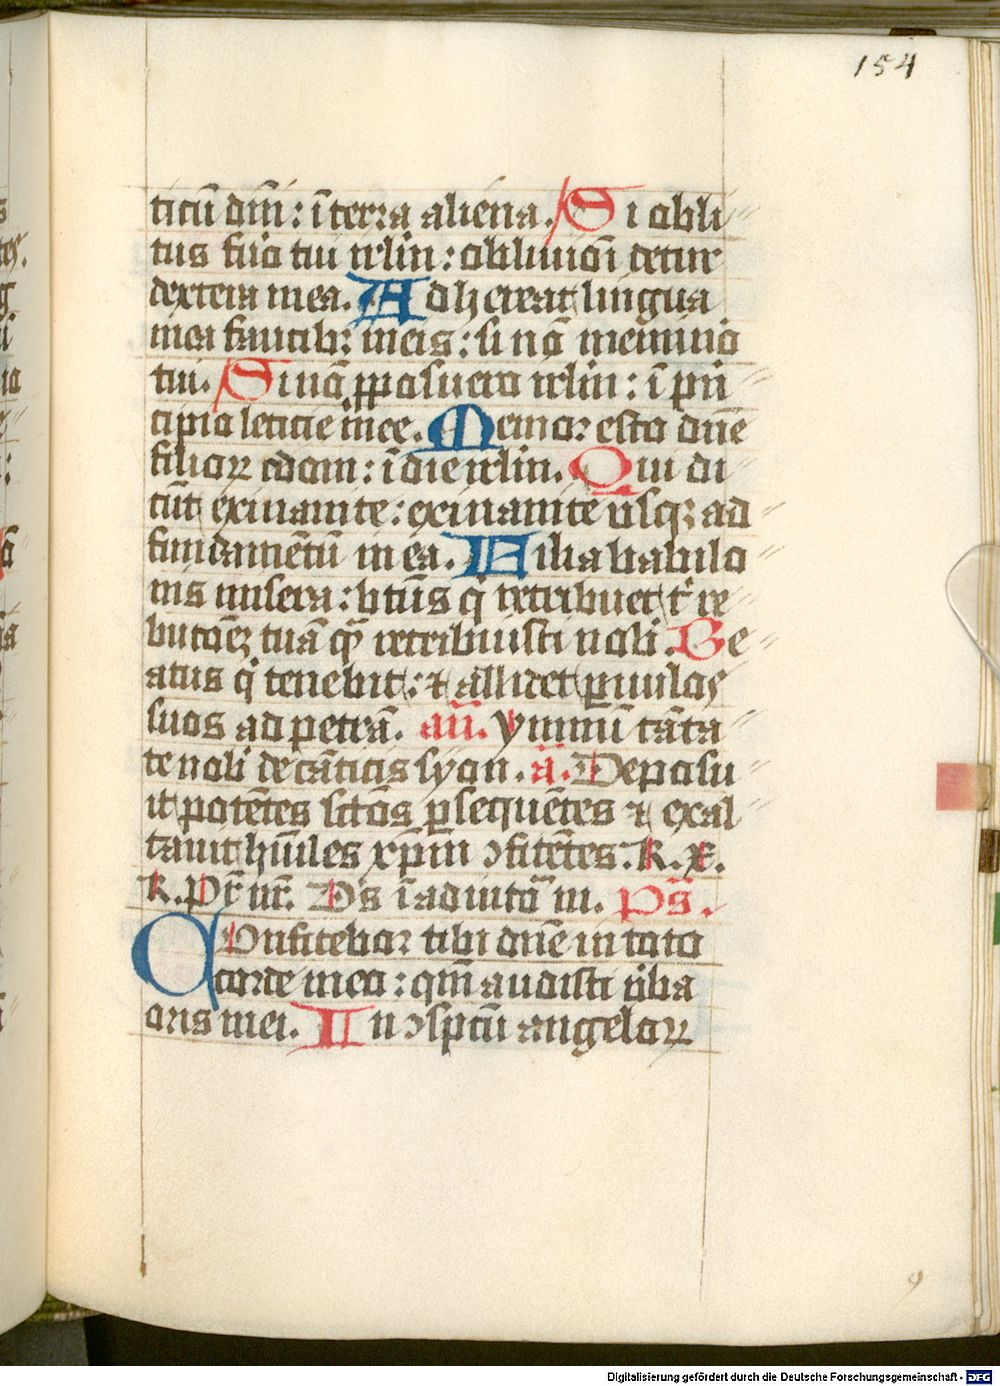 154
ticū dn̄i: ī terra aliena. Si obli
tus fuĩo tui irlm̄: obliuiōi detur
dextera mea. Adhereat lingua
mea faucibꝫ meis: si nō meminĩo
tui. Si nō ꝓposuero irlm̄: ī prī
cipio leticie mee. Memor esto dn̄e
filioꝝ edom: ī die irlm̄. Qui di
cūt exinanite: exinanite vsqꝫ ad
fundamētū in ea. Filia babilo
nis misera: btūs q̇ retribuet t' re
butōeꝫ tuā qͣꝫ retribuisti nobi. Be
atus q̇ tenebit: ⁊ allidet ꝑuulos
suos ad petrā. an̄. Ymnū cāta
te nobi de cāticis syon. ā. Deposu
it potētes sctōs ꝑsequētes ⁊ exal
tauit hūiles xp̄m ↄfitētes. k. x̄.
k. Pr̄ nr̄. Ds̄ ī adiutō m. Ps̄.
Confitebor tibi dn̄e in toto
corde meo: qm̄ audisti v̄ba
oris mei. In ↄspcū angeloꝝ
9
Digitalisierung gefördert durch die Deutsche Forschungsgemeinschaft - DFG